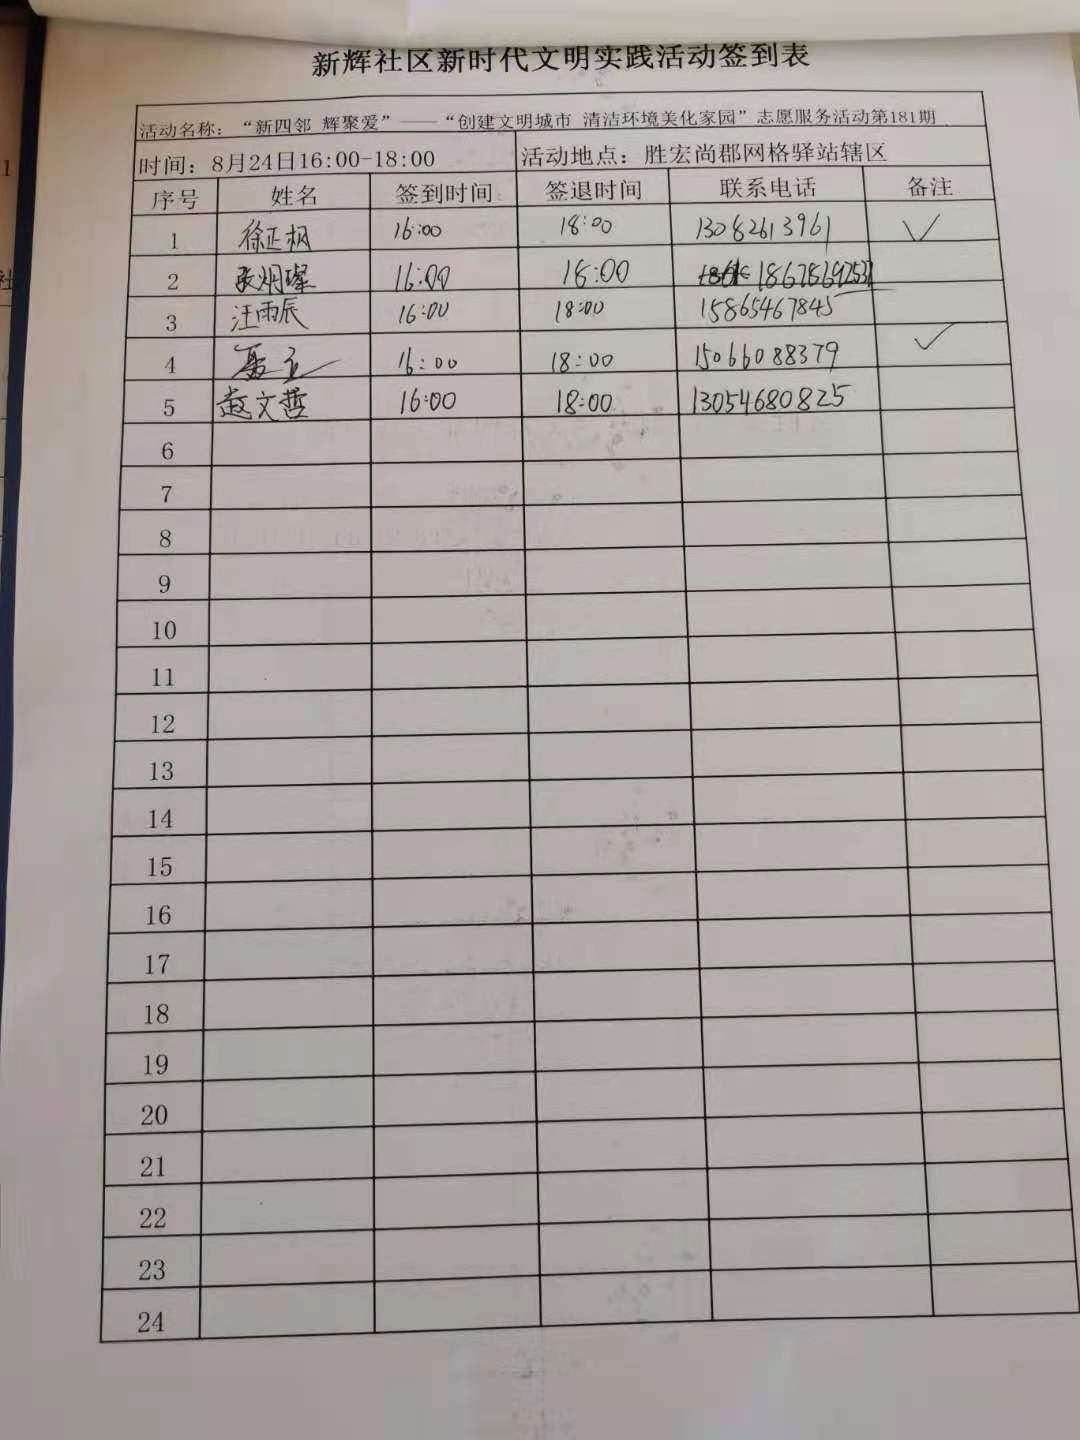 新辉社区新时代文明实践活动签到表
活动名称：“新四邻 辉聚爱”——“创建文明城市 清洁环境美化家园”志愿服务活动第181期
时间：8月24日16:00-18:00 活动地点：胜宏尚郡网格驿站辖区
序号 姓名 签到时间 签退时间 联系电话 备注
1 徐正枫 16:00 18:00 13082613961 ✓
2 16:00 18:00
3 汪雨辰 16:00 18:00 15865467845
4 聂立 16:00 18:00 15066088379 ✓
5 赵文哲 16:00 18:00 13054680825
6
7
8
9
10
11
12
13
14
15
16
17
18
19
20
21
22
23
24